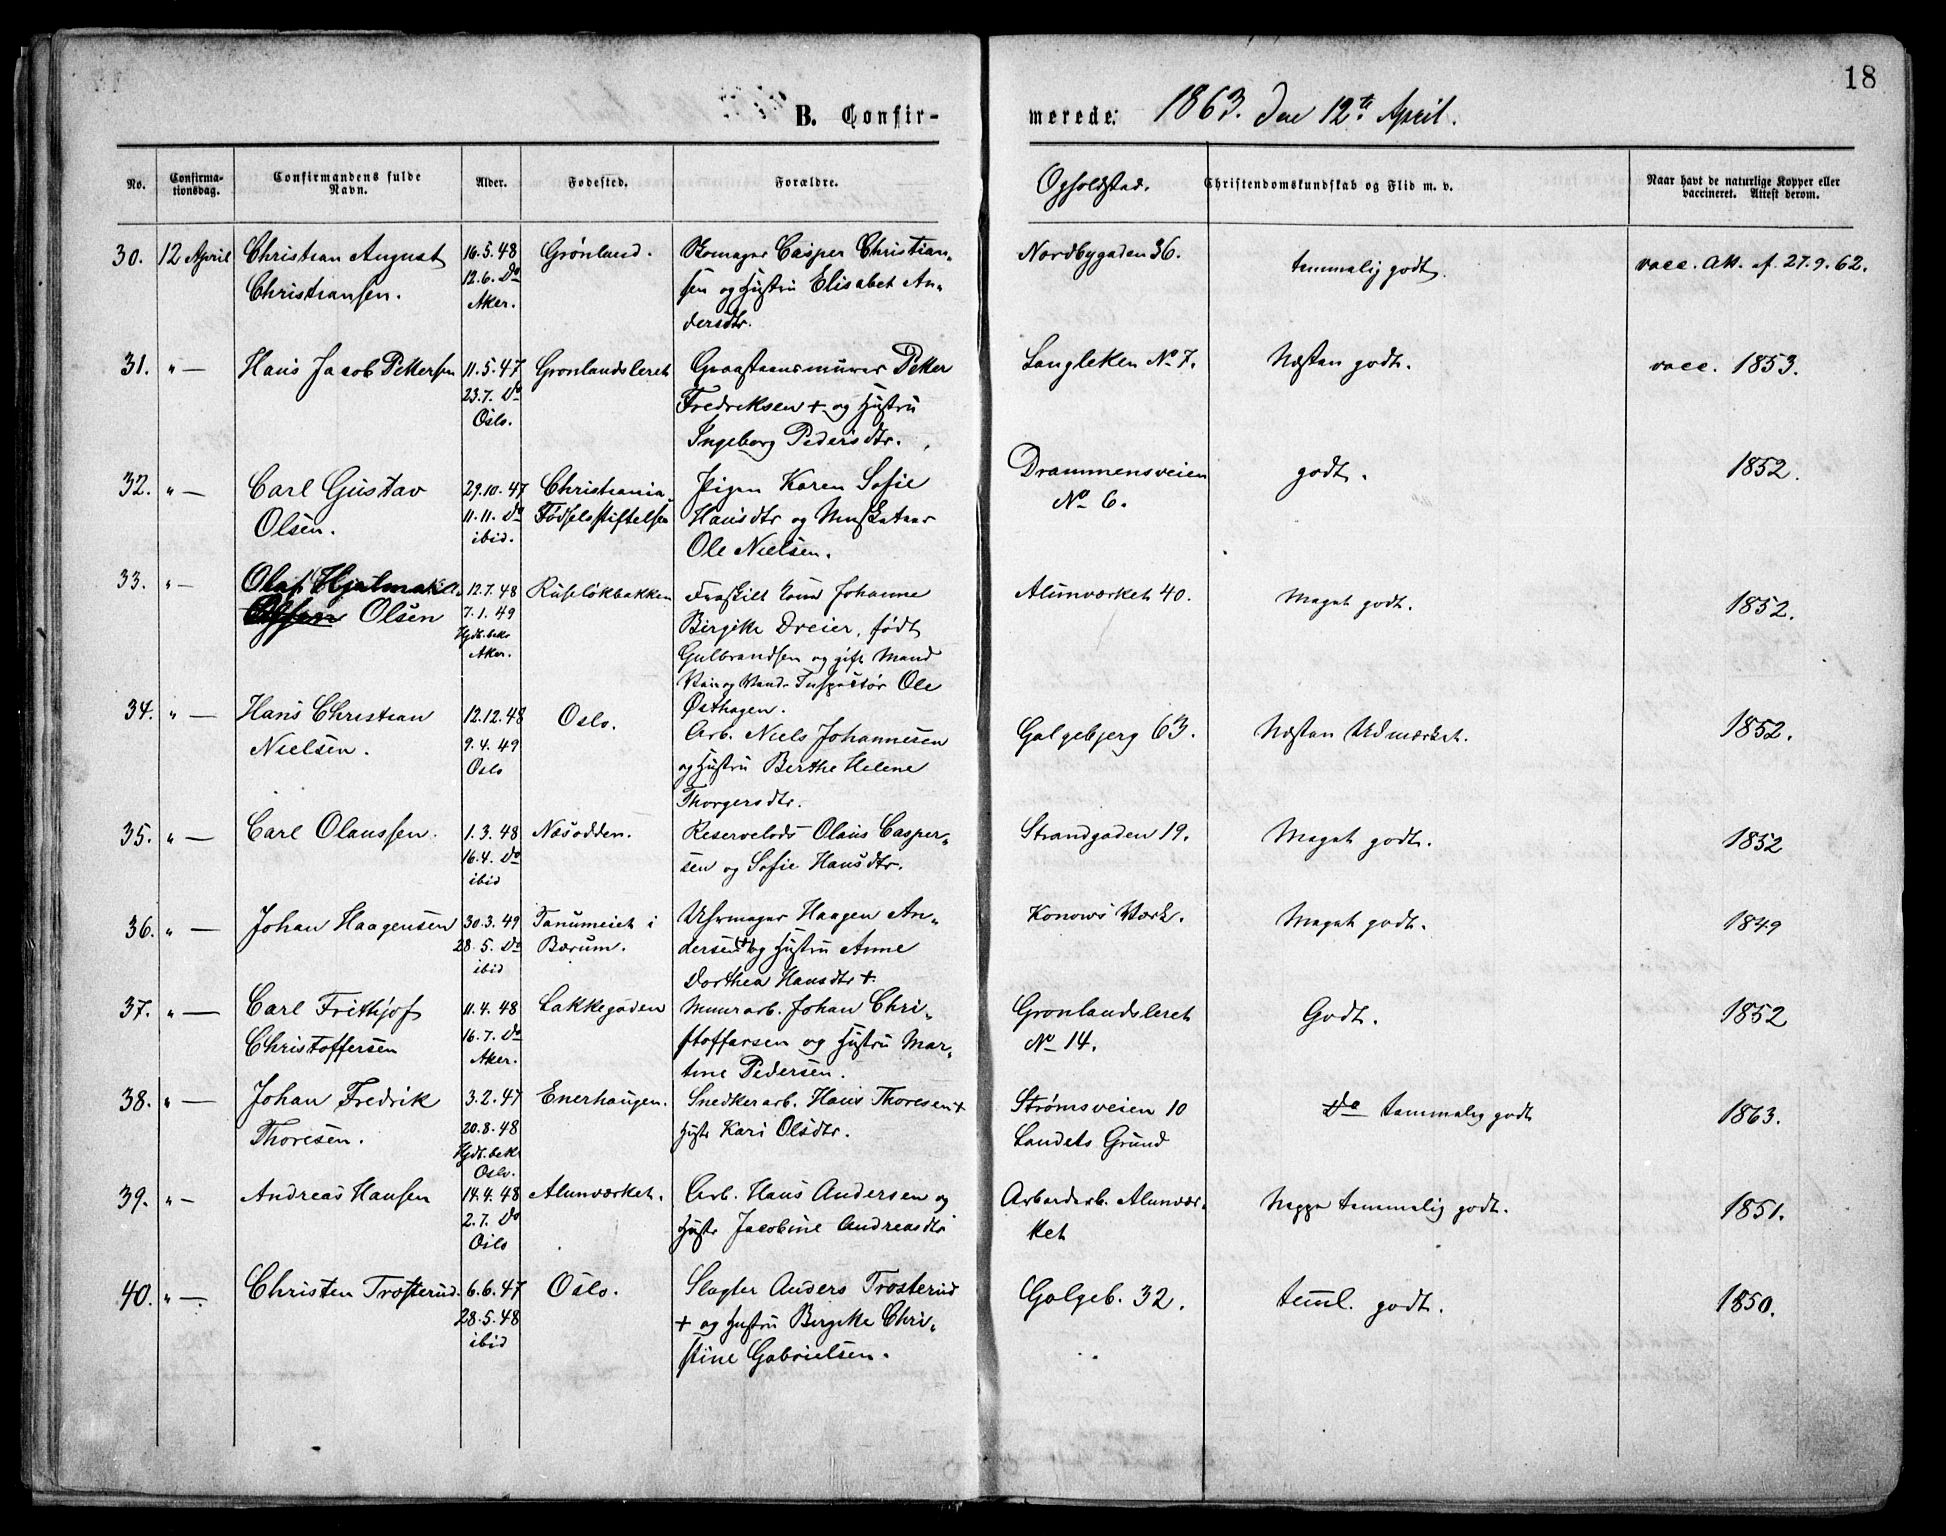 18
B. Confirmerede: 1863. den 12te April.
No. Confirmationsdag. Confirmandens fulde Navn. Alder. Fødested. Forældre. Opholdsted. Christendomskundskab og Flid m. v. Naar havt de naturlige Kopper eller vaccineret. Attest derom.
30. 12 April Christian August 16.5.48 Grønland. Casper Christian- Nordbygaden 36. temmelig godt. vacc. Att. f. 27.9.62.
Christiansen. 12.6. Do sen og Hustru Elisabet An-
Aker. dersdtr.
31. " — Hans Jacob Pettersen 11.5.47 Grønlandsleret Graasteensmurer Petter Langleken No 7. Næsten godt. vacc. 1853.
23.7. Do Fredriksen + og Hustru
Oslo. Ingeborg Pedersdtr.
32. " — Carl Gustav 29.10.47 Christiania Pigen Karen Sofie Drammensveien godt. 1852.
Olsen. 11.11. Do Fødselsstiftelsen Hansdtr og Musketeer No 6.
ibid. Ole Nielsen.
33. " — Olaf Hjalmar 12.7.48 Ruseløkbakken Fraskilt Kone Johanne Alunværket 40. Meget godt. 1852.
Olsen 7.1.49 Birgitte Dreier, født
Hjdb. bekr. Gulbrandsen og gift Mand
Aker. Inspectør Ole
Østhagen.
34. " — Hans Christian 12.12.48 Oslo. Arb. Niels Johannesen Galgebjerg 63. Næsten Udmærket. 1852.
Nielsen. 9.4.49 og Hustru Berthe Helene
Oslo Thorgersdtr.
35. " — Carl Olaussen. 1.3.48 Næsodden. Reservelods Olaus Casper- Strandgaden 19. Meget godt. 1852
16.4. Do sen og Sofie Hansdtr.
ibid
36. " — Johan Haagensen 30.3.49 Tanumeiet i Uhrmager Haagen An- Konows Værk. Meget godt. 1849
28.5. Do Bærum. dersen + og Hustru Anne
ibid Dorthea Hansdtr +
37. " — Carl Frithjof 11.4.48 Lakkegaden Murarb. Johan Chri- Grønlandsleret Godt. 1852
Christoffersen 16.7. Do stoffersen og Hustru Mar- No 14.
Aker. tine Pedersen.
38. " — Johan Fredrik 3.2.47 Enerhaugen. Snedkerarb. Hans Thoresen + Strømsveien 10 Do temmelig godt 1863.
Thoresen. 20.8.48 Hustr Kari Olsdtr. Landets Grund
Hjdb. bekr
Oslo.
39. " — Andreas Hansen 14.4.48 Alunværket. Arb. Hans Andersen og Arbeiderb. Alunvær- Neppe temmelig godt. 1851.
2.7. Do Hustr Jacobine Andreasdtr ket
Oslo
40. " — Christen Trosterud. 6.6.47 Oslo. Slagter Anders Trosterud Galgeb. 32. teml. godt. 1850.
28.5.48 + og Hustru Birgitte Chri-
ibid stine Gabrielsen.